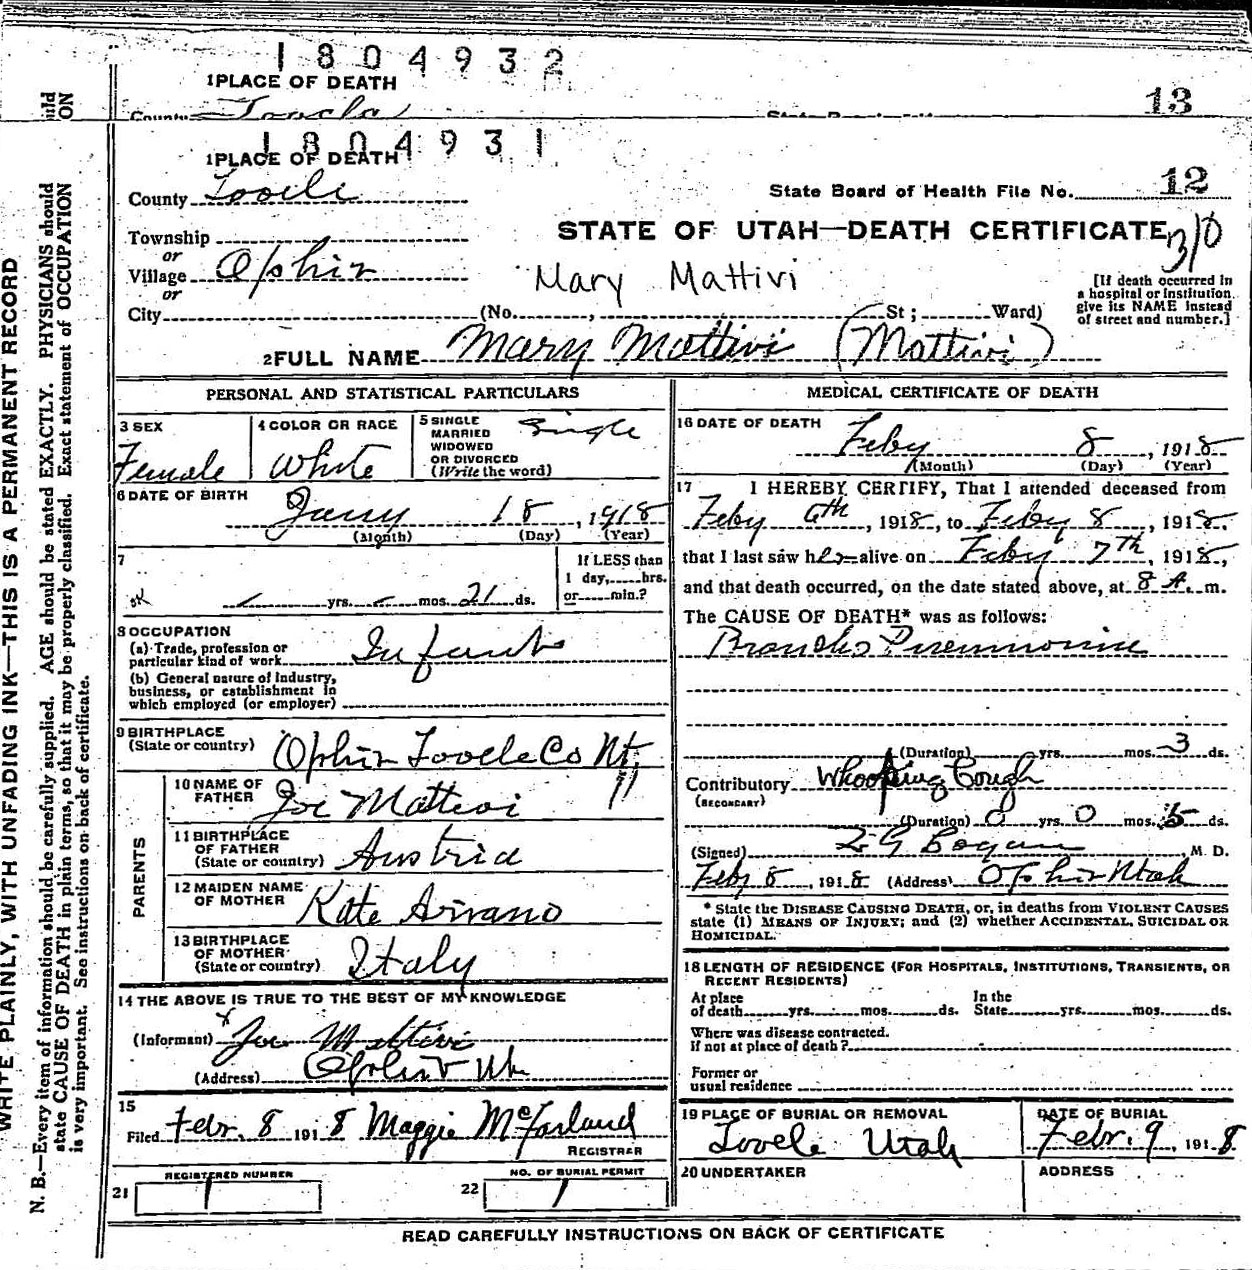 1804932
1 PLACE OF DEATH
13
1804931
1 PLACE OF DEATH
County Tooele
State Board of Health File No. 12
Township
STATE OF UTAH—DEATH CERTIFICATE
or
Village Ophir
Mary Mattivi
or
City (No. , St ; Ward)
[If death occurred in
a hospital or institution
give its NAME instead
of street and number.]
2 FULL NAME Mary Mattivi (Mattivi)
PERSONAL AND STATISTICAL PARTICULARS
3 SEX
Female
4 COLOR OR RACE
White
5 SINGLE
MARRIED
WIDOWED
OR DIVORCED
(Write the word)
Single
6 DATE OF BIRTH
Jany 18, 1918
(Month) (Day) (Year)
7
yrs. mos. 21 ds.
If LESS than
1 day, hrs.
or min.?
8 OCCUPATION
(a) Trade, profession or
particular kind of work Infant
(b) General nature of industry,
business, or establishment in
which employed (or employer)
9 BIRTHPLACE
(State or country) Ophir Tooele Co Ut.
PARENTS
10 NAME OF
FATHER Joe Mattivi
11 BIRTHPLACE
OF FATHER
(State or country) Austria
12 MAIDEN NAME
OF MOTHER Kate Arivano
13 BIRTHPLACE
OF MOTHER
(State or country) Italy
14 THE ABOVE IS TRUE TO THE BEST OF MY KNOWLEDGE
(Informant) x Joe Mattivi
(Address) Ophir Ut
15
Filed Febr. 8 1918 Maggie McFarland
REGISTRAR
REGISTERED NUMBER
21 1
NO. OF BURIAL PERMIT
22 1
MEDICAL CERTIFICATE OF DEATH
16 DATE OF DEATH
Feby 8, 1918
(Month) (Day) (Year)
17 I HEREBY CERTIFY, That I attended deceased from
Feby 6th, 1918, to Feby 8, 1918,
that I last saw her alive on Feby 7th, 1918,
and that death occurred, on the date stated above, at 8 A. m.
The CAUSE OF DEATH* was as follows:
Broncho Pneumonia
(Duration) yrs. mos. 3 ds.
Contributory Whooping Cough
(SECONDARY)
(Duration) 0 yrs. 0 mos. 5 ds.
(Signed) , M. D.
Feby 8, 1918 (Address) Ophir Utah
* State the DISEASE CAUSING DEATH, or, in deaths from VIOLENT CAUSES
state (1) MEANS OF INJURY; and (2) whether ACCIDENTAL, SUICIDAL OR
HOMICIDAL.
18 LENGTH OF RESIDENCE (FOR HOSPITALS, INSTITUTIONS, TRANSIENTS, OR
RECENT RESIDENTS)
At place
of death yrs. mos. ds.
In the
State yrs. mos. ds.
Where was disease contracted.
if not at place of death?
Former or
usual residence
19 PLACE OF BURIAL OR REMOVAL
Tooele Utah
DATE OF BURIAL
Febr. 9, 1918
20 UNDERTAKER
ADDRESS
READ CAREFULLY INSTRUCTIONS ON BACK OF CERTIFICATE
WRITE PLAINLY, WITH UNFADING INK—THIS IS A PERMANENT RECORD
N. B.—Every item of information should be carefully supplied. AGE should be stated EXACTLY. PHYSICIANS should
state CAUSE OF DEATH in plain terms, so that it may be properly classified. Exact statement of OCCUPATION
is very important. See instructions on back of certificate.